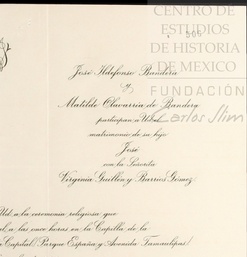 CENTRO DE
ESTUDIOS
DE HISTORIA
DE MEXICO
FUNDACIÓN
Carlos Slim
José Ildefonso Bandera
y
Matilde Olavarría de Bandera
participan a Ud. el
matrimonio de su hijo
José
con la Señorita
Virginia Guillén y Barrios Gómez
Ud. a la ceremonia religiosa que
a las once horas en la Capilla de la
Capital (Parque España y Avenida Tamaulipas)